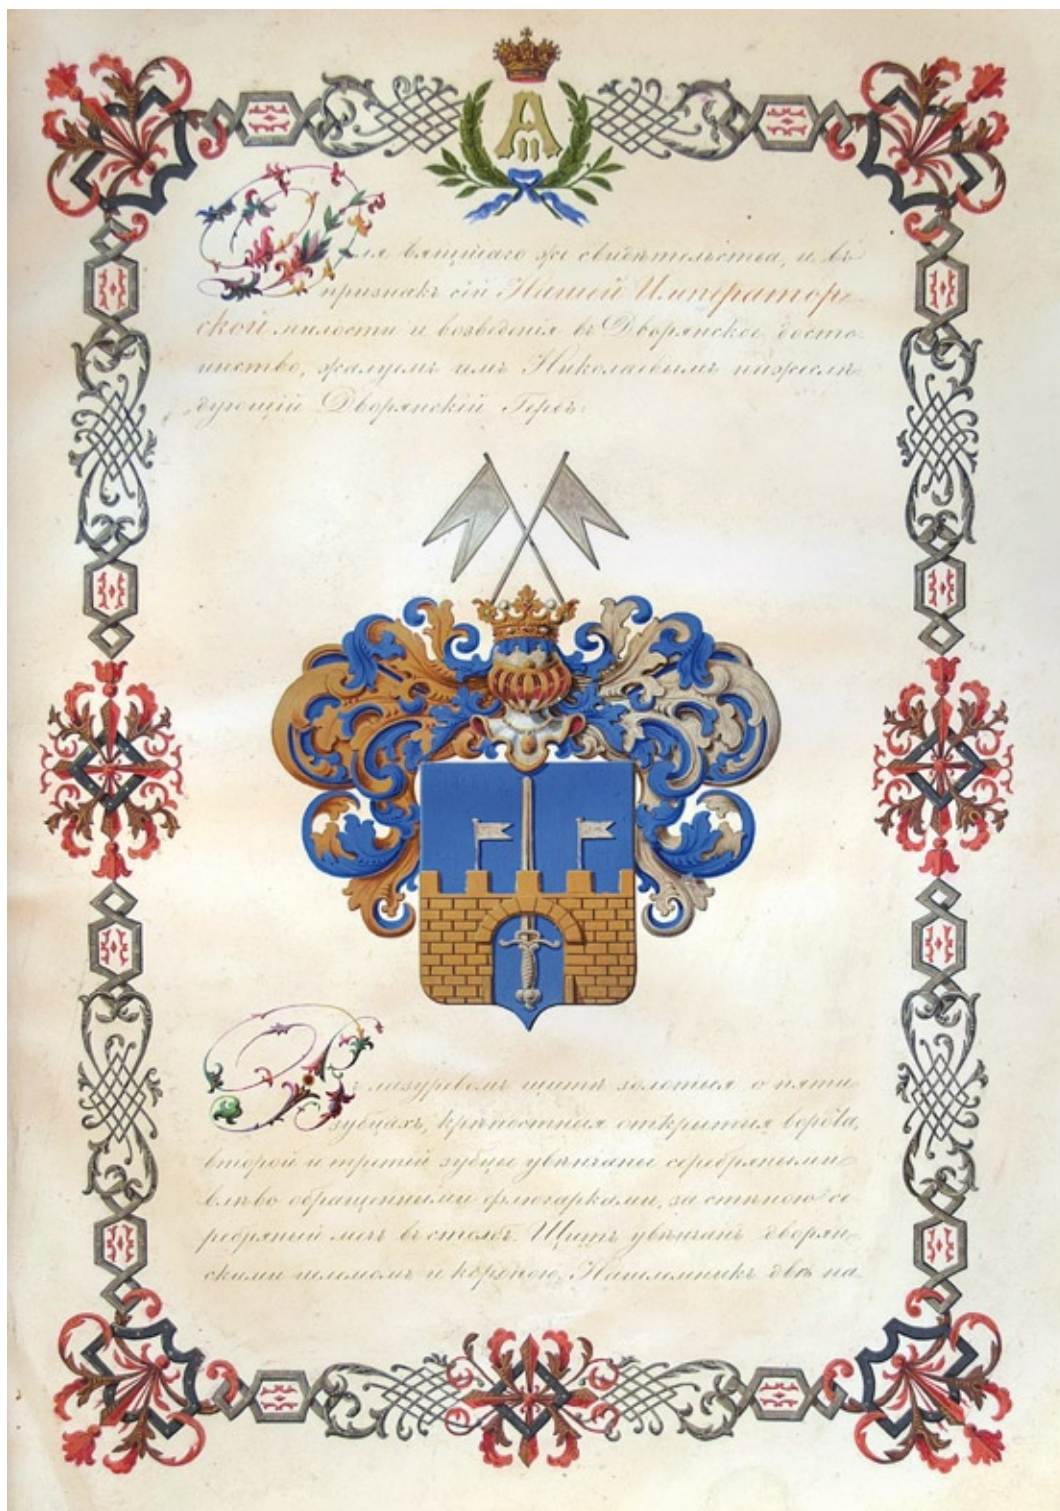 А
III
Для вящшаго же свидѣтельства, и въ
признакъ сей Нашей Император-
ской милости и возведенія въ Дворянское досто-
инство, жалуемъ имъ Николаевымъ нижеслѣ-
дующій Дворянскій Гербъ:
Въ лазуревомъ щитѣ золотыя о пяти
зубцахъ, крѣпостныя открытыя ворота,
второй и третій зубцы увѣнчаны серебряными
влѣво обращенными флюгарками, за стѣною се
ребряный мечъ въ столбъ. Щитъ увѣнчанъ дворян-
скими шлемомъ и короною. Нашлемникъ двѣ на